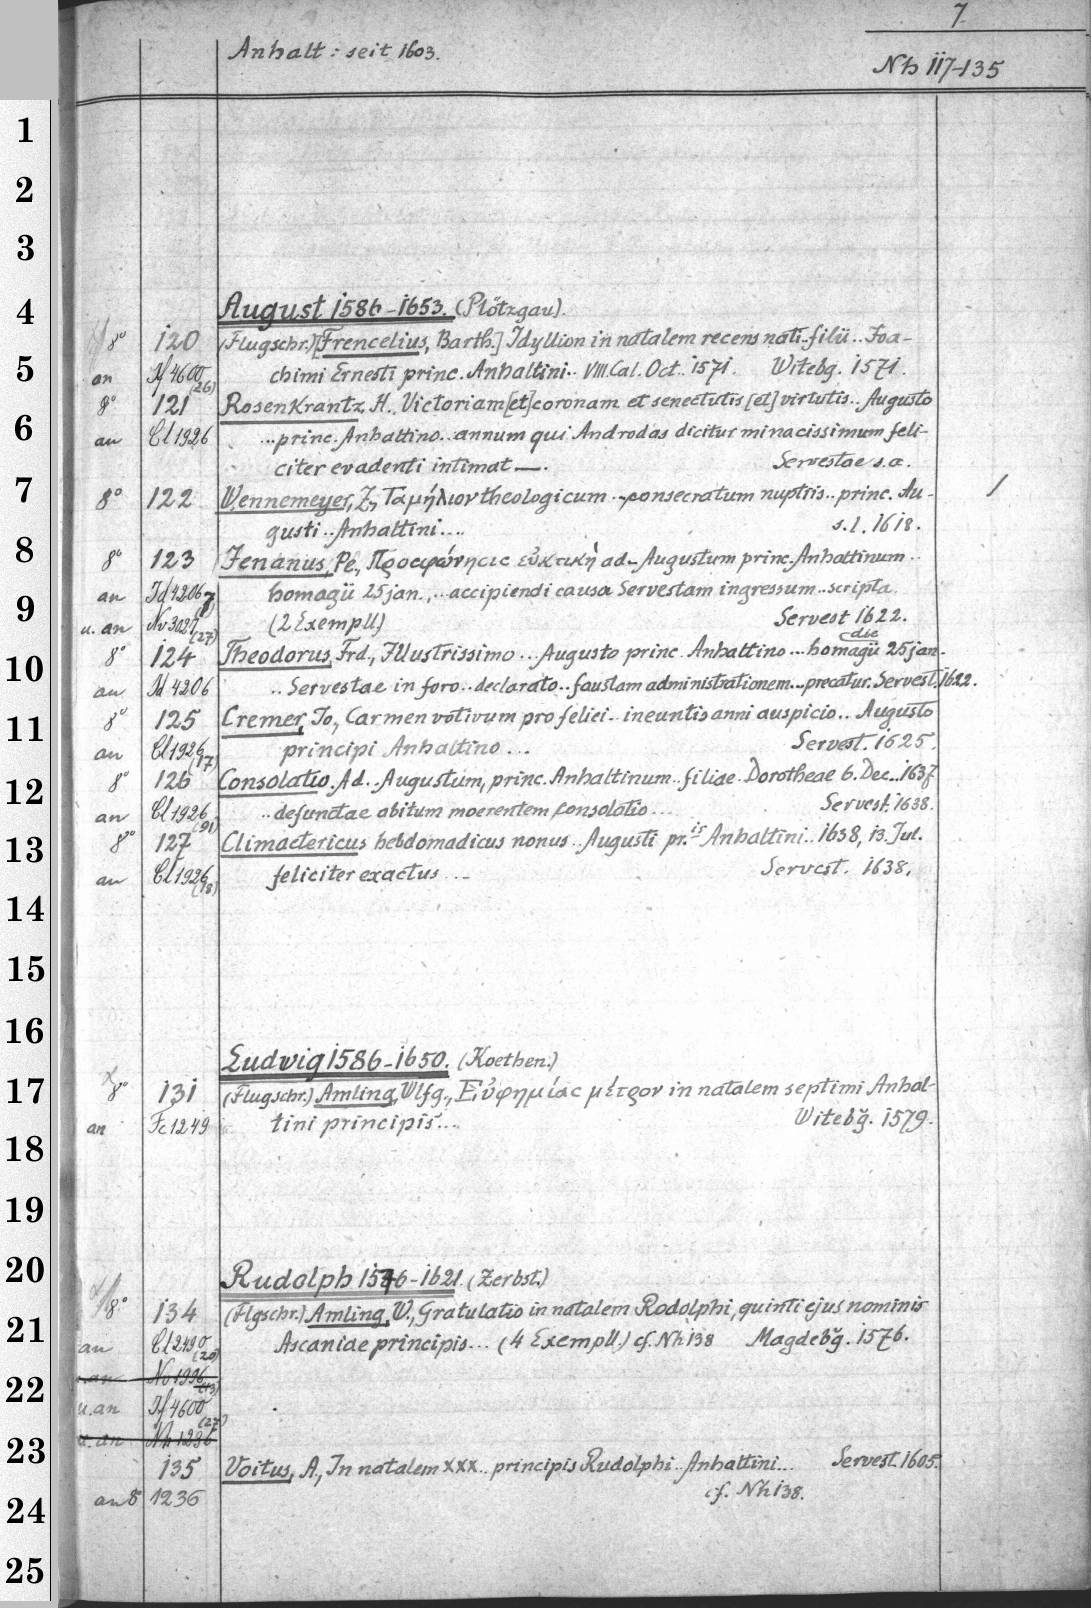 7.
Anhalt : seit 1603.
Nh 117-135
1
2
3
4
5
6
7
8
9
10
11
12
13
14
15
16
17
18
19
20
21
22
23
24
25
August 1586-1653. (Plötzgau).
8° 120 (Flugschr.) [Frencelius, Barth.] Idyllion in natalem recens nati.. filii .. Joa-
an If 4600 (26) chimi Ernesti princ. Anhaltini.. VIII. Cal. Oct. 1571. Witebg. 1571.
8° 121 Rosenkrantz, H., Victoriam [et] coronam et senectutis [et] virtutis .. Augusto
an Cl 1926 ... princ. Anhaltino .. annum qui Androdas dicitur minacissimum feli-
citer evadenti intimat —. Servestae s.a.
8° 122 Wennemeyer, Z., Ταμήλιον theologicum .. consecratum nuptiis .. princ. Au- /
gusti .. Anhaltini .... s.l. 1618.
8° 123 Fenanus, Pe., Προσφώνησις εὐκτικὴ ad .. Augustum princ. Anhaltinum ..
an Id 4206 homagii 25 jan., .. accipiendi causa Servestam ingressum .. scripta.
u. an Nv 3027 (27) (2 Exempll) Servest 1622.
8° 124 Theodorus, Frd., Illustrissimo ... Augusto princ. Anhaltino ... homagii die 25 jan.
an Id 4206 .. Servestae in foro .. declarato .. faustam administrationem .. precatur. Servest. 1622.
8° 125 Cremer, Jo., Carmen votivum pro felici .. ineuntis anni auspicio .. Augusto
an Cl 1926 (17) principi Anhaltino ... Servest. 1625.
8° 126 Consolatio. Ad .. Augustum, princ. Anhaltinum .. filiae Dorotheae 6. Dec... 1637
an Cl 1926 (91) .. defunctae obitum moerentem consolatio ... Servest. 1638.
8° 127 Climactericus hebdomadicus nonus .. Augusti pr.is Anhaltini.. 1638, 13. Jul.
an Cl 1926 (18) feliciter exactus ... Servest. 1638.
Ludwig 1586-1650. (Koethen.)
8° 131 (Flugschr.) Amling, Wlfg., Εὐφημίας μέτρον in natalem septimi Anhal-
an Fc 1249 tini principis .... Witebg. 1579.
Rudolph 1576-1621. (Zerbst.)
8° 134 (Flgschr.) Amling, W., Gratulatio in natalem Rodolphi, quinti ejus nominis
an Cl 2490 (20) Ascaniae principis ... (4 Exempll.) cf. Nh 138 Magdebg. 1576.
u. an Nv 1996 (13)
u. an If 4600 (27)
u. an Nh 1236
135 Voitus, A., In natalem XXX .. principis Rudolphi .. Anhaltini ... Servest. 1605.
an 8 1236 cf. Nh 138.